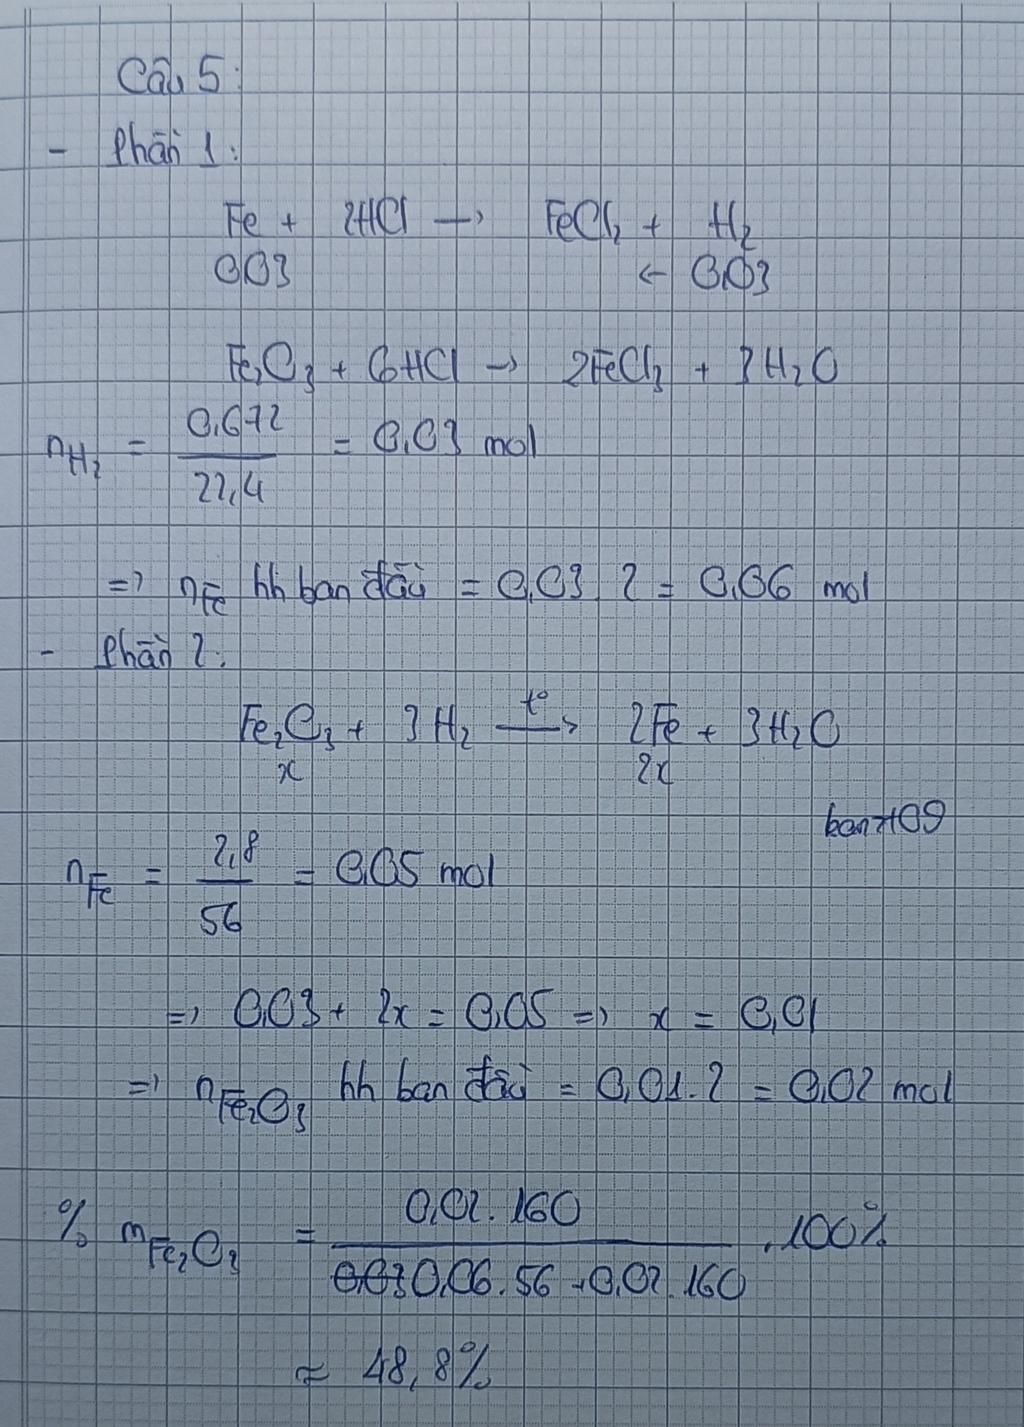 Câu 5:
- Phần 1:
Fe + 2HCl → FeCl₂ + H₂
0,03 ← 0,03
Fe₂O₃ + 6HCl → 2FeCl₃ + 3H₂O
n_H₂ = 0,672 / 22,4 = 0,03 mol
=> n_Fe hh ban đầu = 0,03 . 2 = 0,06 mol
- Phần 2:
Fe₂O₃ + 3H₂ –t°→ 2Fe + 3H₂O
x 2x
n_Fe = 2,8 / 56 = 0,05 mol
=> 0,03 + 2x = 0,05 => x = 0,01
=> n_Fe₂O₃ hh ban đầu = 0,01.2 = 0,02 mol
% m_Fe₂O₃ = 0,02.160 / 0,06.56 + 0,02.160 .100%
≈ 48,8%